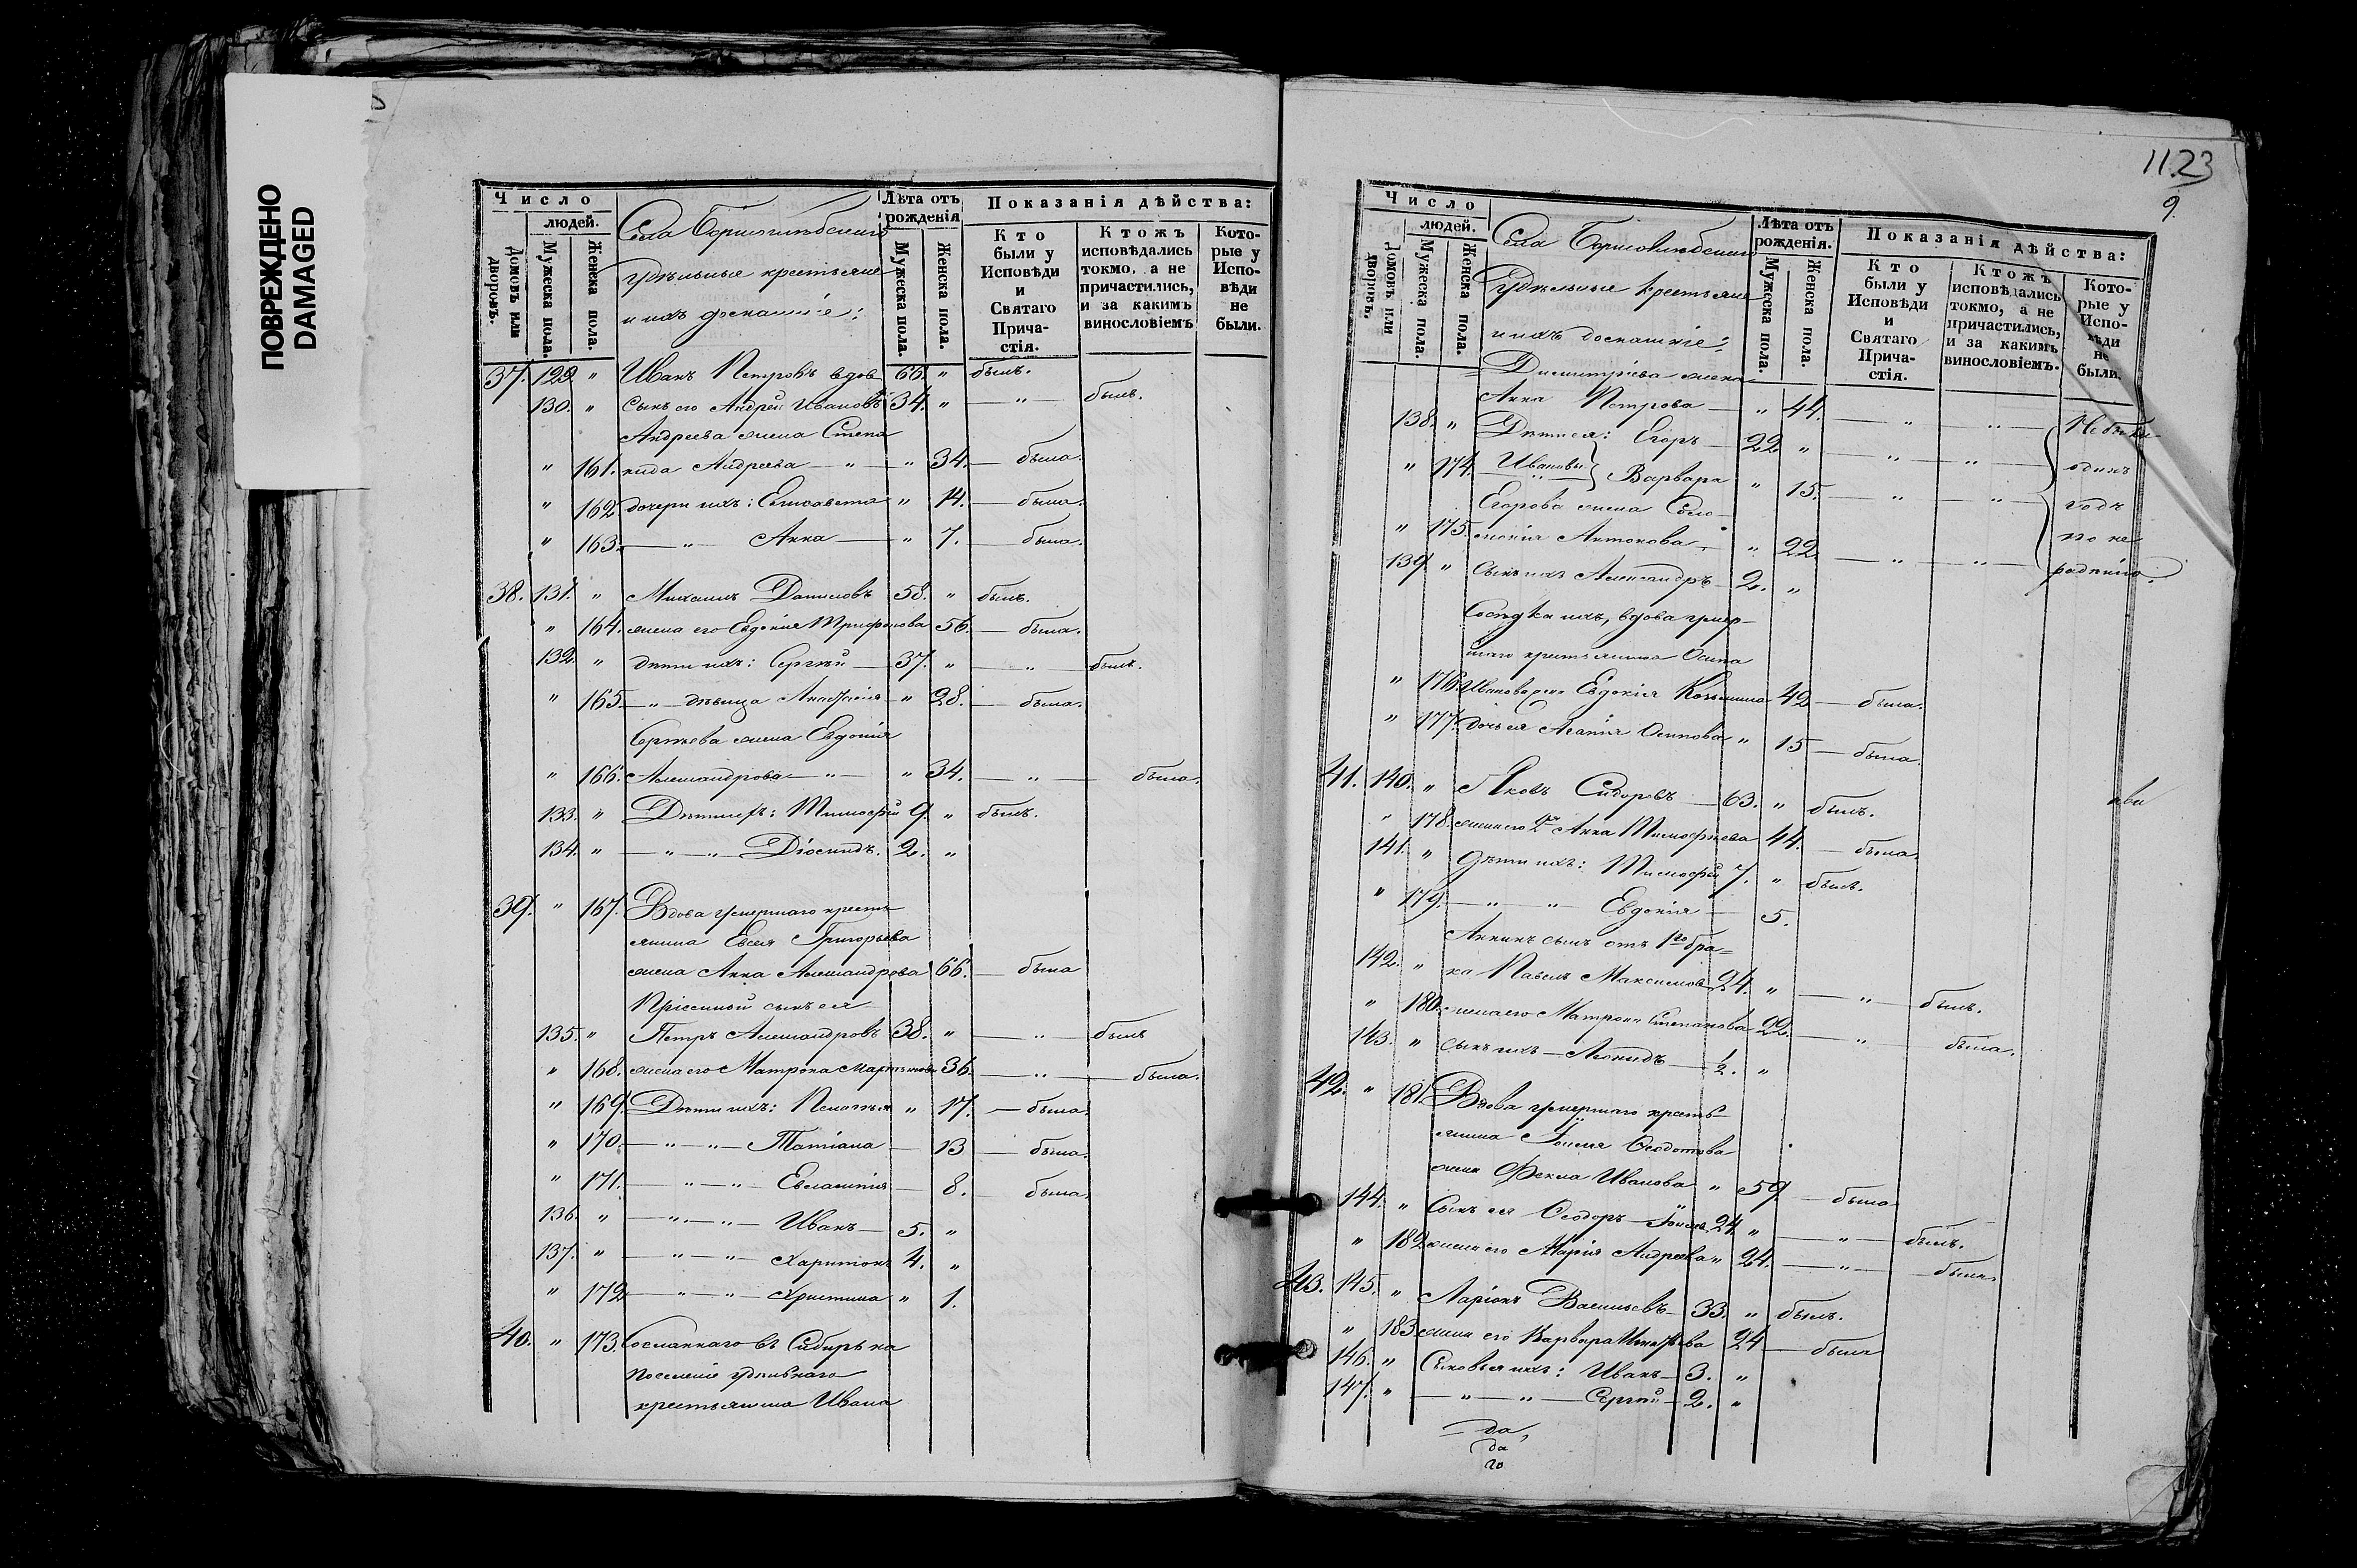 ПОВРЕЖДЕНО
DAMAGED
Число
людей.
Домовъ или дворовъ.
Мужеска пола.
Женска пола.
Села
удѣльные крестьяне
и ихъ домашніе:
Лѣта отъ рожденія
Мужеска пола.
Женска пола.
Показанія дѣйства:
Кто были у Исповѣди и Святаго Причастія.
Ктожъ исповѣдались токмо, а не причастились, и за какимъ винословіемъ
Которые у Исповѣди не были.
37. 129. " Иванъ Петровъ вдов 66. " былъ.
130. " Сынъ его Андрей Ивановъ 34. " — " — былъ.
Андреева жена Степа
" 161. нида Андреева — " — " 34. — была.
" 162 дочери ихъ: Елисавета " 14. — была.
" 163. — " — Анна — " 7. — была.
38. 131. " Михаилъ Даниловъ 58. " былъ.
" 164. жена его Евдокія Трифонова 56. — была.
132. " дѣти ихъ: Сергѣй — 37. " — " — былъ.
" 165. — " — дѣвица Анастасія — " 28. — была.
Сергѣева жена Евдокія
" 166. Александрова — " — " 34. — " — была.
133. " Дѣти ихъ: Тимофей 9. " былъ.
134. " — " — " — Діомидъ. 2. "
39. " 167. Вдова умершаго кресть
янина Евсея Григорьева
жена Анна Александрова 66. — была
Пріемной сынъ ея
135. " Петръ Александровъ 38. " — " — былъ
" 168. жена его Матрона Мартынова 36. — " — была.
" 169. Дѣти ихъ: Пелагея " 17. — была.
" 170. — " — " — Татіана — 13 — была.
" 171. — " — " Евлампія — 8. — была.
136. " — " — " — Иванъ — 5. "
137. " — " — " — Харитонъ 4. "
" 172 — " — " — Христина " 1.
40. " 173. Сосланнаго въ Сибирь на
поселеніе удѣльнаго
крестьянина Ивана
1123
9.
Число
людей.
Домовъ или дворовъ.
Мужеска пола.
Женска пола.
Села
Удѣльные крестьяне
и ихъ домашніе:
Лѣта отъ рожденія.
Мужеска пола.
Женска пола.
Показанія дѣйства:
Кто были у Исповѣди и Святаго Причастія.
Ктожъ исповѣдались токмо, а не причастились, и за какимъ винословіемъ.
Которые у Исповѣди не были.
Димитріева жена
Анна Петрова — " 44. — " — " — Не были
138. " Дѣти ея: Егоръ — 22 " — " — " — одинъ
" 174. Ивановы Варвара " 15. — " — " — годъ
Егорова жена Соло
" 175. монія Антонова — " 22 — " — " — по не
139. " Сынъ ихъ Александръ — 2. " радѣнію.
Сосѣдка ихъ, вдова умер-
шаго крестьянина Осипа
" 176. Иванова жена Евдокія Козьмина 42 — была.
" 177. дочь ея Агапія Осипова " 15 — была.
41. 140. " Яковъ Сидоровъ — 63. " былъ.
" 178. жена его 2я Анна Тимофеева 44. — была.
141. " дѣти ихъ: Тимофей 7. " былъ.
" 179. — " — " Евдокія — 5.
Аннинъ сынъ отъ 1го бра=
142. " ка Павелъ Максимовъ 24. " — " — былъ.
" 180. жена его Матрона Степанова 22. — " — была.
143. " сынъ ихъ — Леонидъ — ½. "
42. " 181. Вдова умершаго кресть
янина Ѳеодотова
жена Ѳекла Иванова " 59 — была
144. " Сынъ ея Ѳеодоръ 24 " — " — былъ.
" 182 жена его Марія Андреева " 24. — " — была.
43. 145. " Ларіонъ Васильевъ — 33. " былъ.
" 183. жена его Варвара Игнатьева 24 — была
146. " Сыновья ихъ: Иванъ — 3. "
147. " — " — " — Сергѣй — 2. "
да,
да
го